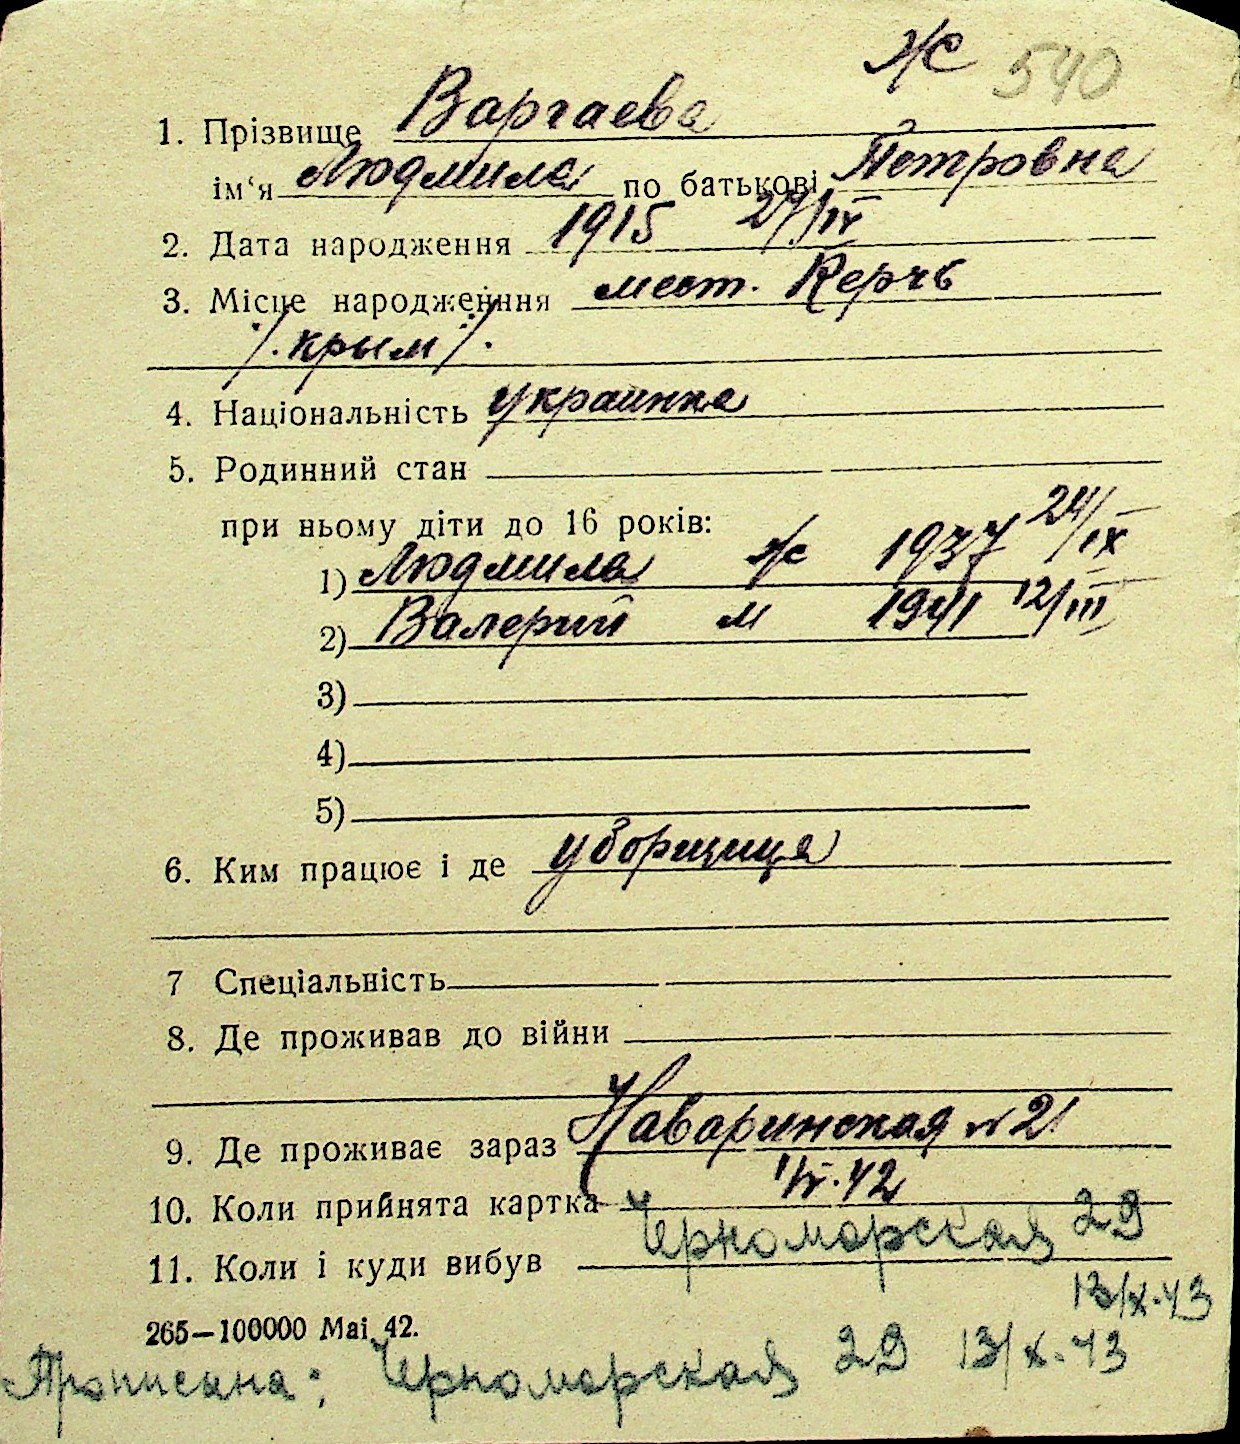 ж 540
1. Прізвище Варгаева
ім‘я Людмила по батькові Петровна
2. Дата народження 1915 27/IV
3. Місце народження мест. Керчь
/. Крым /.
4. Національність украинка
5. Родинний стан
при ньому діти до 16 років:
1) Людмила ж 1937 24/IX
2) Валерий м 1941 12/III
3)
4)
5)
6. Ким працює і де уборщиця
7 Спеціальність
8. Де проживав до війни
9. Де проживає зараз Наваринская № 21
10. Коли прийнята картка
11. Коли і куди вибув Черноморская 29
13/X.43
265—100000 Маі 42.
Прописана: Черноморская 29 13/X.43